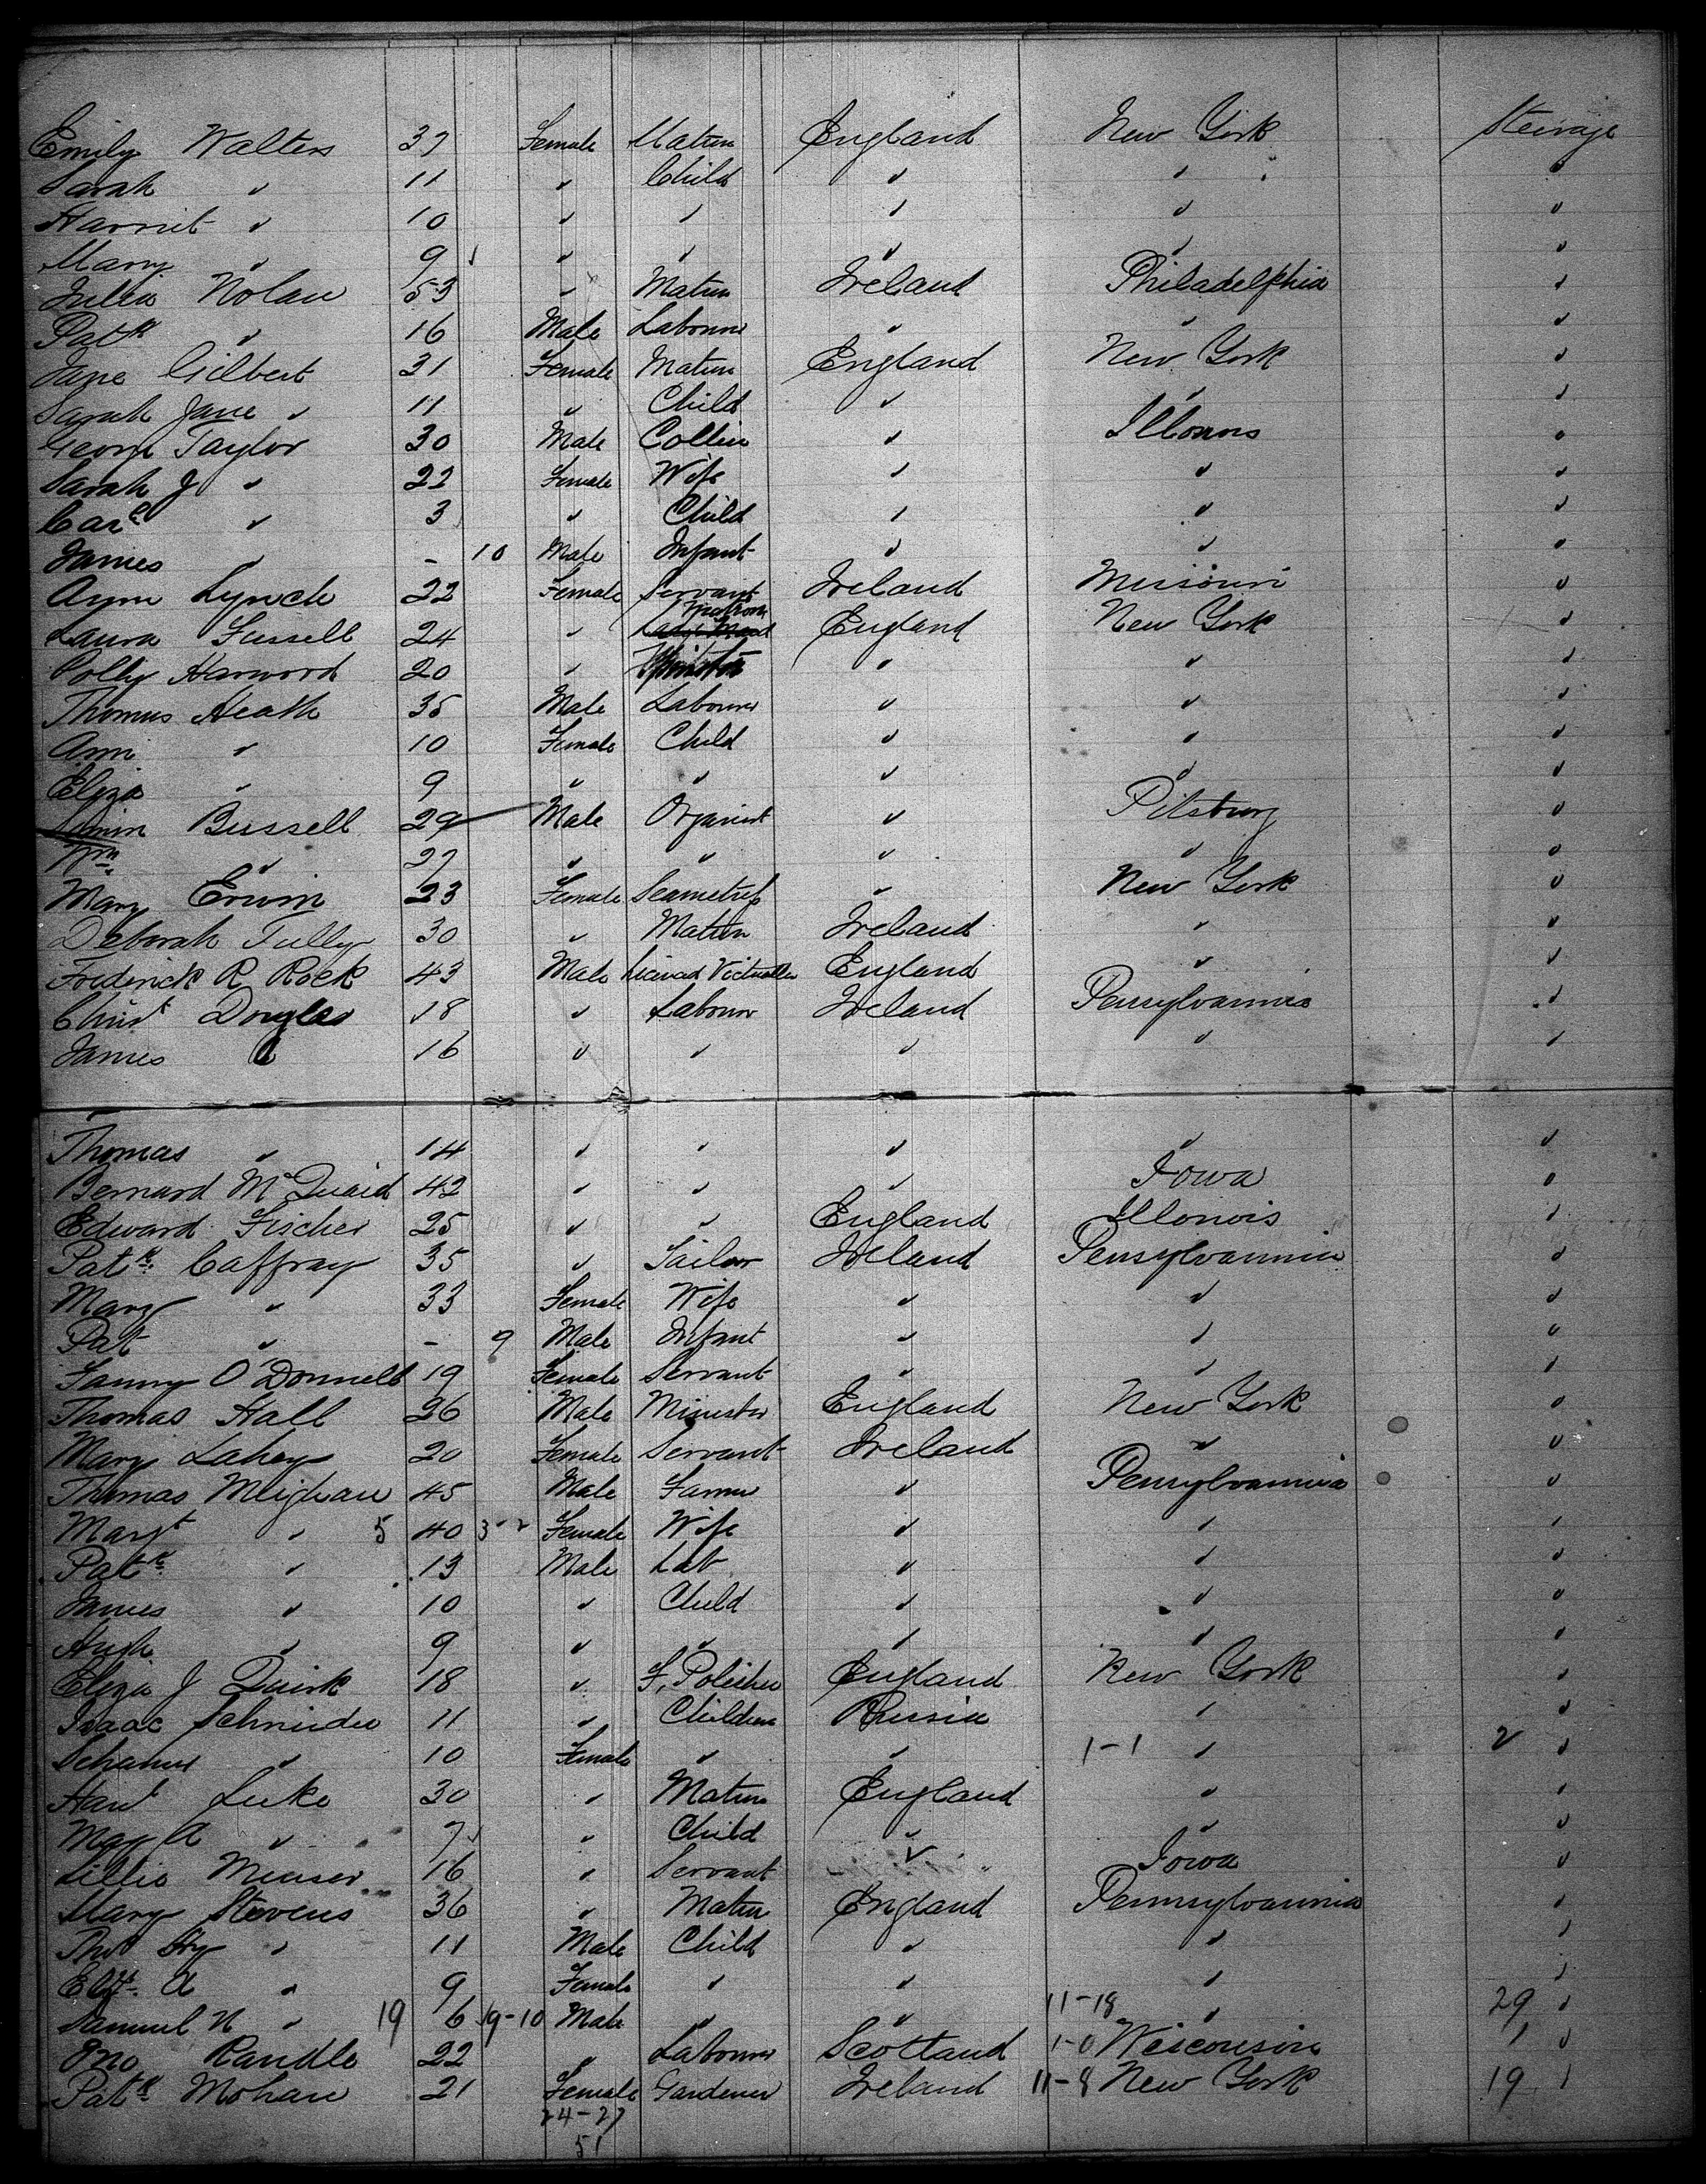 Emily Walters 37 Female Matron England New York Steerage
Sarah " 11 " Child " " "
Harriet " 10 " " " " "
Mary " 9 " " " " "
Julia Nolan 53 " Matron Ireland Philadelphia "
Patk " 16 Male Labourer " " "
Jane Gilbert 31 Female Matron England New York "
Sarah Jane " 11 " Child " " "
George Taylor 30 Male Collier " Illonois "
Sarah J " 22 Female Wife " " "
Care " 3 " Child " " "
James " - 10 Male Infant " " "
Ann Lynch 22 Female Servant Ireland Missouri "
Laura Fussell 24 " Matron England New York "
Polly Harwood 20 " Spinster " " "
Thomas Heath 35 Male Labourer " " "
Ann " 10 Female Child " " "
Eliza " 9 " " " " "
Bussell 29 Male Organist " Pitsburg "
Wm " 27 " " " " "
Mary Erwin 23 Female Seamstress " New York "
Deborah Tully 30 " Matron Ireland " "
Frederick R Rock 43 Male Licensed Victualler England " "
Christ Douglas 18 " Labourer Ireland Pensylvannia "
James " 16 " " " " "
Thomas " 14 " " " " "
Bernard McQuaid 42 " " " Iowa "
Edward Fischer 25 " " England Illonois "
Patk Caffray 35 " Tailor Ireland Pensylvannia "
Mary " 33 Female Wife " " "
Pat " - 9 Male Infant " " "
Fanny O'Donnell 19 Female Servant " " "
Thomas Hall 26 Male Minister England New York "
Mary Lahey 20 Female Servant Ireland " "
Thomas Meighan 45 Male Farmer " Pensylvannia "
Margt " 5 40 3-2 Female Wife " " "
Patk " 13 Male Lab " " "
James " 10 " Child " " "
Hugh " 9 " " " " "
Eliza J Quirk 18 " F. Polisher England New York "
Isaac Schneider 11 " Children Russia " "
" 10 Female " " 1-1 " 2 "
Hart Luke 30 " Matron England " "
May A " 7 " Child " " "
Lillie 16 " Servant " Iowa "
Mary Stevens 36 " Matron England Pennsylvannia "
Thos Hy " 11 Male Child " " "
Elizh A " 9 Female " " " "
Samuel N " 19 6 19-10 Male " " 11-18 " 29 "
Jno Randle 22 " Labourer Scotland 1-0 Wisconsin 1 "
Patk Mohan 21 Female Gardener Ireland 11-8 New York 19 "
24-27
51